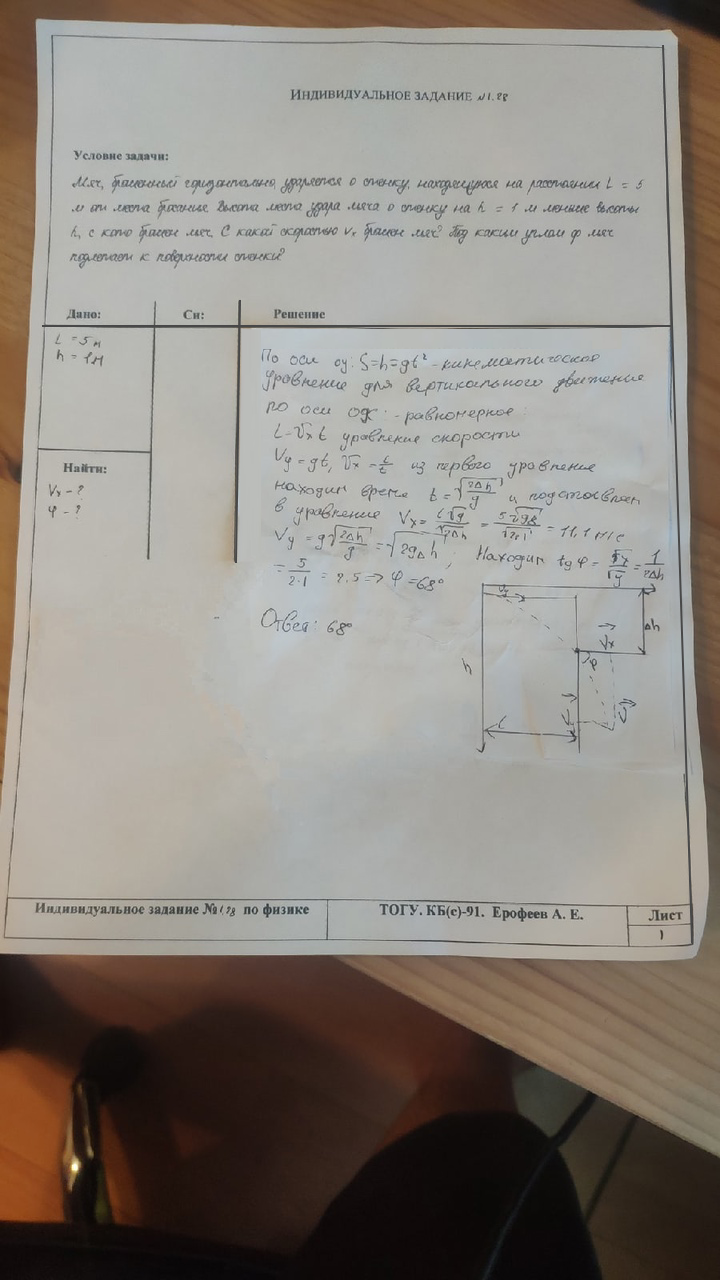 ИНДИВИДУАЛЬНОЕ ЗАДАНИЕ №1.28
Условие задачи:
Мяч, брошенный горизонтально, ударяется о стенку, находящуюся на расстоянии L = 5
м от места бросания. Высота места удара мяча о стенку на h = 1 м меньше высоты
h, с кото брошен мяч. С какой скоростью Vx брошен мяч? Под каким углом φ мяч
подлетает к поверхности стенки?
Дано: Си: Решение
L = 5м
h = 1м
Найти:
Vx - ?
φ - ?
По оси oy: S=h=gt² - кинематическое
уравнение для вертикального движения
по оси ox: - равномерное:
L-Vxt уравнение скорости
Vy = gt, Vx = L/t из первого уравнение
находим время t = √(2Δh/g) и подставляем
в уравнение Vx = L√g/√2Δh = = 11,1 м/с
Vy = g√(2Δh/g) = √(2gΔh); Находим tg φ = = 1/2Δh
= 5/2·1 = 2.5 => φ = 68°
Ответ: 68°
h
L
φ
Vx
Δh
Индивидуальное задание №1.28 по физике
ТОГУ. КБ(с)-91. Ерофеев А. Е.
Лист
1